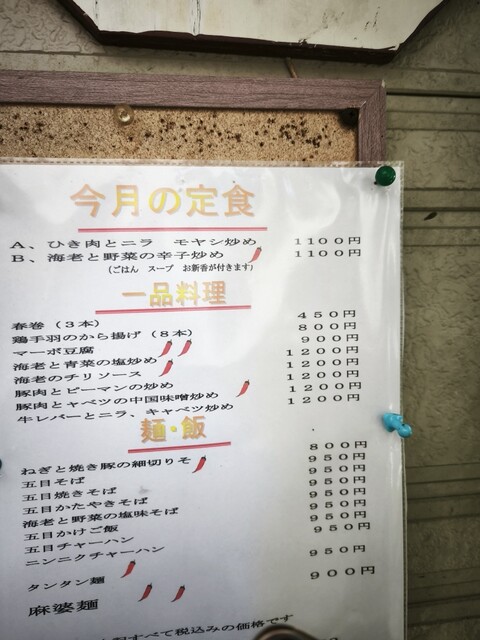 今月の定食
A、ひき肉とニラ モヤシ炒め 1100円
B、海老と野菜の辛子炒め 1100円
（ごはん スープ お新香が付きます）
一品料理
春巻（3本） 450円
鶏手羽のから揚げ（8本） 800円
マーボ豆腐 900円
海老と青菜の塩炒め 1200円
海老のチリソース 1200円
豚肉とピーマンの炒め 1200円
豚肉とャベツの中国味噌炒め 1200円
牛レバーとニラ、キャベツ炒め 1200円
麺・飯
ねぎと焼き豚の細切りそ 800円
五目そば 950円
五目焼きそば 950円
五目かたやきそば 950円
海老と野菜の塩味そば 950円
五目かけご飯 950円
五目チャーハン 950円
ニンニクチャーハン 950円
タンタン麺 950円
麻婆麺 900円
すべて税込みの価格です